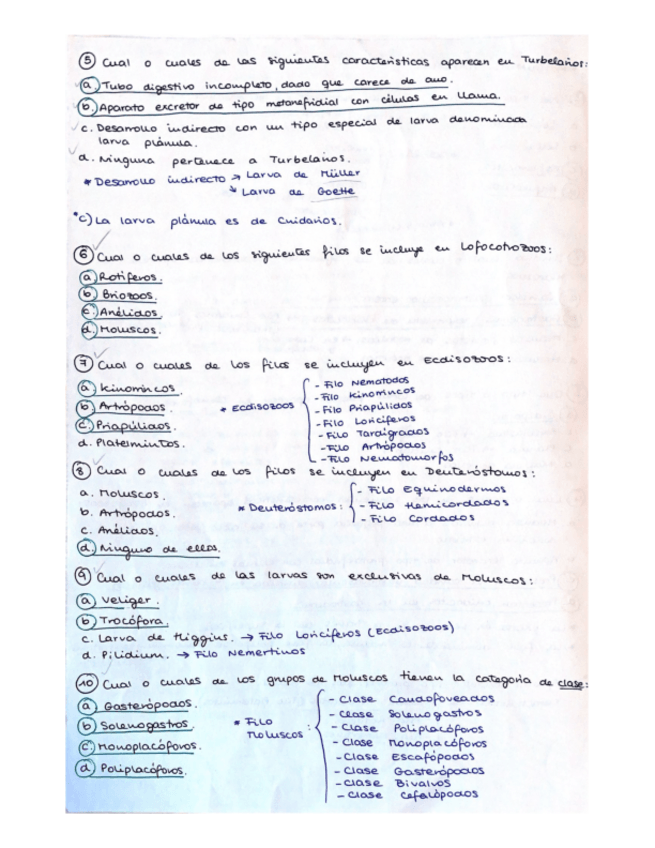 ⑤ Cual o cuales de las siguientes características aparecen en Turbelarios:
a. Tubo digestivo incompleto, dado que carece de ano.
b. Aparato excretor de tipo metanefridial con células en llama.
c. Desarrollo indirecto con un tipo especial de larva denominada
larva plánula.
d. Ninguna pertenece a Turbelarios.
* Desarrollo indirecto → Larva de Müller
↘ Larva de Goette
*c) La larva plánula es de Cnidarios.
⑥ Cual o cuales de los siguientes filos se incluye en Lofocotrozoos:
a. Rotíferos.
b. Briozoos.
c. Anélidos.
d. Moluscos.
⑦ Cual o cuales de los filos se incluyen en Ecdisozoos:
a. Kinorrincos.
b. Artrópodos.
c. Priapúlidos.
d. Platelmintos.
* Ecdisozoos
- Filo Nematodos
- Filo Kinorrincos
- Filo Priapúlidos
- Filo Loricíferos
- Filo Tardígrados
- Filo Artrópodos
- Filo Nematomorfos
⑧ Cual o cuales de los filos se incluyen en Deuteróstomos:
a. Moluscos.
b. Artrópodos.
c. Anélidos.
d. Ninguno de ellos.
* Deuteróstomos:
- Filo Equinodermos
- Filo Hemicordados
- Filo Cordados
⑨ Cual o cuales de las larvas son exclusivas de Moluscos:
a. Veliger.
b. Trocófora.
c. Larva de Higgins. → Filo Loricíferos (Ecdisozoos)
d. Pilidium. → Filo Nemertinos
⑩ Cual o cuales de los grupos de Moluscos tienen la categoría de clase:
a. Gasterópodos.
b. Solenogastros.
c. Monoplacóforos.
d. Poliplacóforos.
* Filo
Moluscos :
- Clase Caudofoveados
- Clase Solenogastros
- Clase Poliplacóforos
- Clase Monoplacóforos
- Clase Escafópodos
- Clase Gasterópodos
- Clase Bivalvos
- Clase Cefalópodos